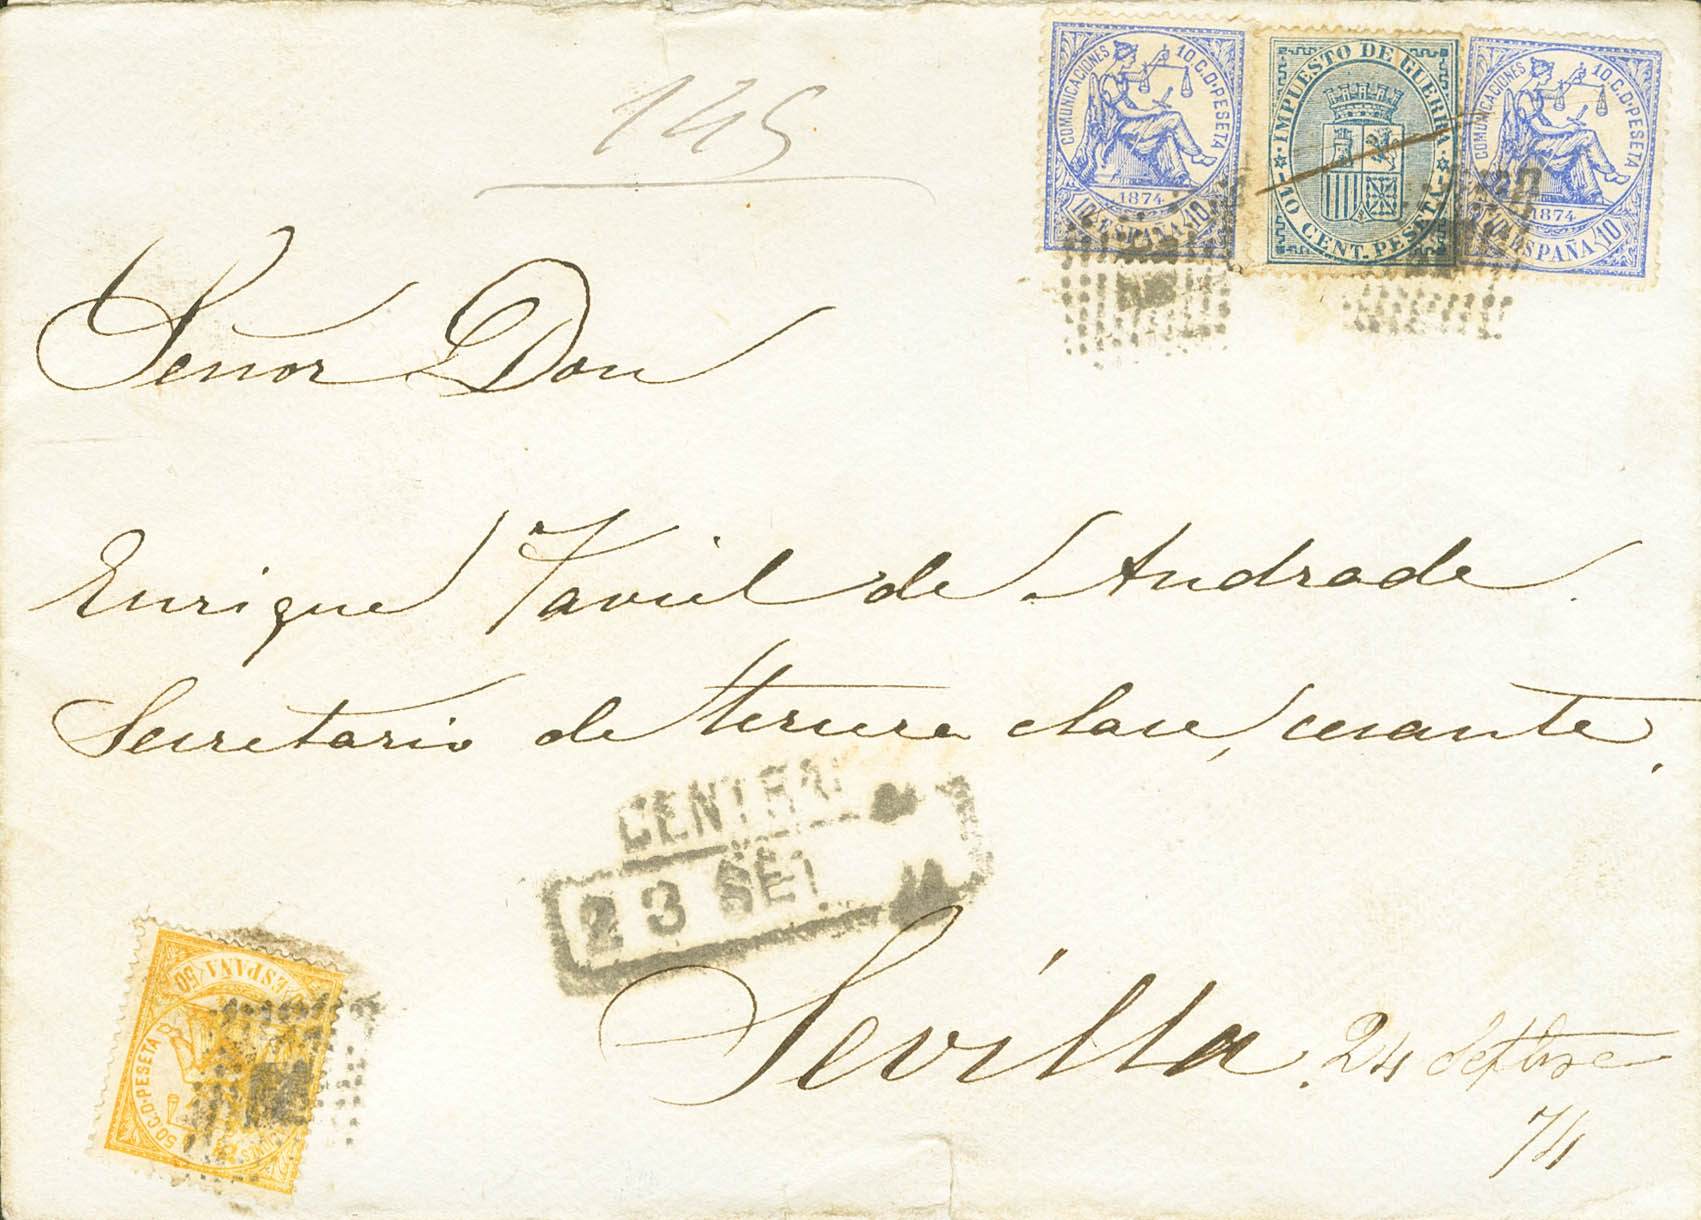 145
COMUNICACIONES 10 C. D. PESETA
1874
10 ESPAÑA 10
IMPUESTO DE GUERRA
10 CENT. PESETA
COMUNICACIONES 10 C. D. PESETA
1874
10 ESPAÑA 10
Señor Don
Enrique Taviel de Andrade.
Secretario de tercera clase, cesante.
CENTRAL
23 SET
Sevilla. 24 Setbre
74
ESPAÑA 50
50 C. D. PESETA